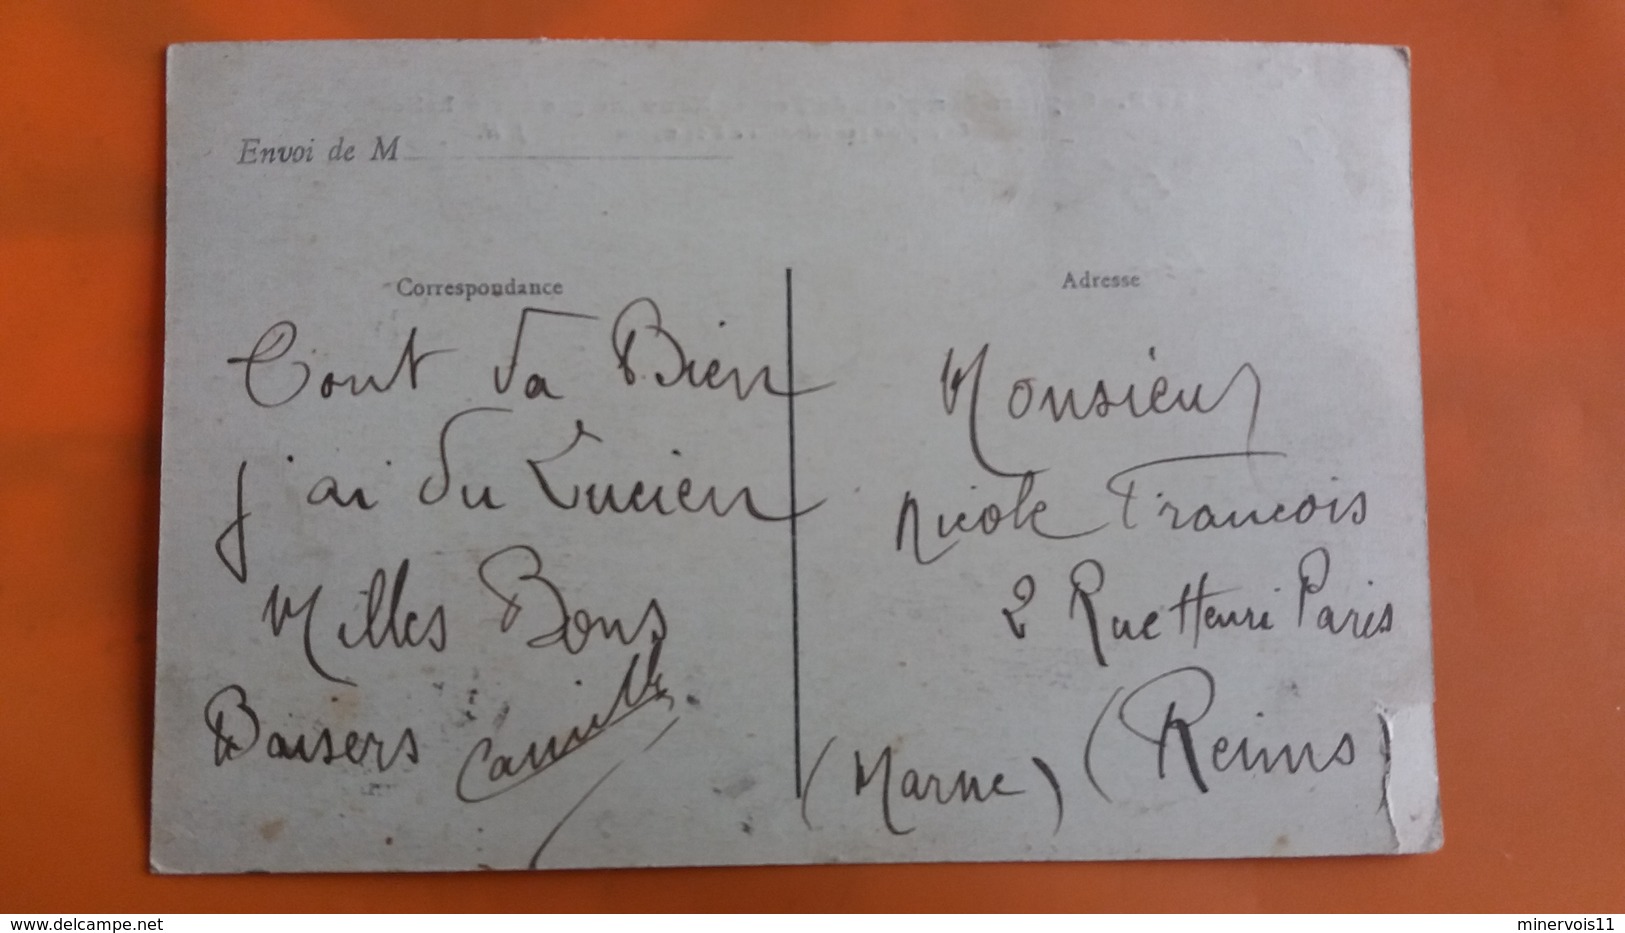 Envoi de M
Correspondance
Tout va Bien
j'ai vu Lucien
Milles Bons
Baisers Camille
Adresse
Monsieur
Nicole Francois
2 Rue Henri Paris
(Reims)
(Marne)
delcampe.net
minervois11